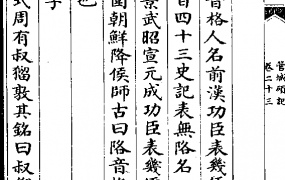 管城碩記
卷二十三
音格人名前漢功臣表幾
百四十三史記表無名
景武昭宣元成功臣表幾
圍朝鮮降侯師古曰音
也
子
式周有叔敦其銘曰叔